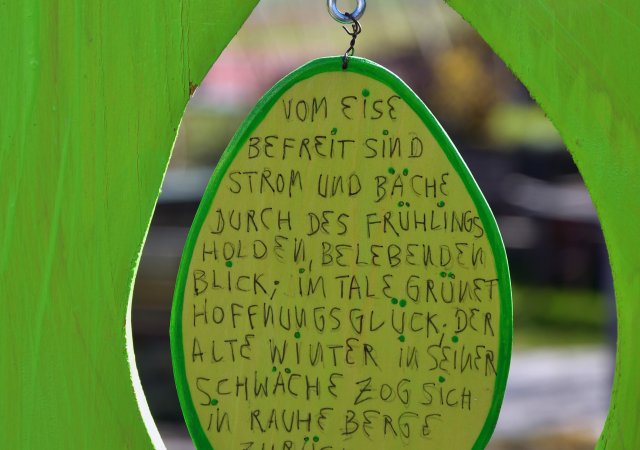 VOM EISE
BEFREIT SIND
STROM UND BÄCHE
DURCH DES FRÜHLINGS
HOLDEN, BELEBENDEN
BLICK; IM TALE GRÜNET
HOFFNUNGSGLÜCK; DER
ALTE WINTER IN SEINER
SCHWÄCHE ZOG SICH
IN RAUHE BERGE